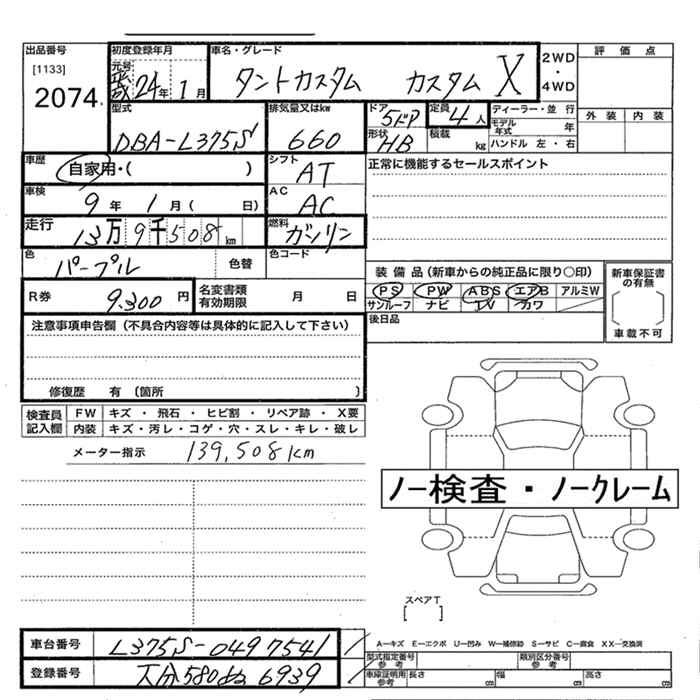 出品番号 初度登録年月 車名・グレード 評価点
[1133] 元号 2WD・4WD
2074 平成 24年 1月 タントカスタム カスタム X
型式 排気量又はkw ドア 定員 ディーラー・並行 外装 内装
DBA-L375S 660 5ドア 4人 モデル年式 年
形状 HB 積載 kg ハンドル 左・右
車歴 自家用・( ) シフト AT 正常に機能するセールスポイント
車検 9年 1月( 日) AC AC
走行 13万9千508km 燃料 ガソリン
色 パープル 色替 色コード
装備品(新車からの純正品に限り○印) 新車保証書の有無
R券 9,300円 名変書類有効期限 月 日 PS PW ABS エアB アルミW
サンルーフ ナビ TV カワ
注意事項申告欄(不具合内容等は具体的に記入して下さい) 後日品 車載不可
修復歴 有 (箇所 )
検査員記入欄 FW キズ・飛石・ヒビ割・リペア跡・X要
内装 キズ・汚レ・コゲ・穴・スレ・キレ・破レ
メーター指示 139,508km
ノー検査・ノークレーム
スペアT
[ ]
車台番号 L375S-0497541 A-キズ E-エクボ U-凹み W-補修跡 S-サビ C-腐食 XX-交換済
型式指定番号 参考 類別区分番号 参考
登録番号 大分580 6939 車線証明用 参考 長さ cm 幅 cm 高さ cm